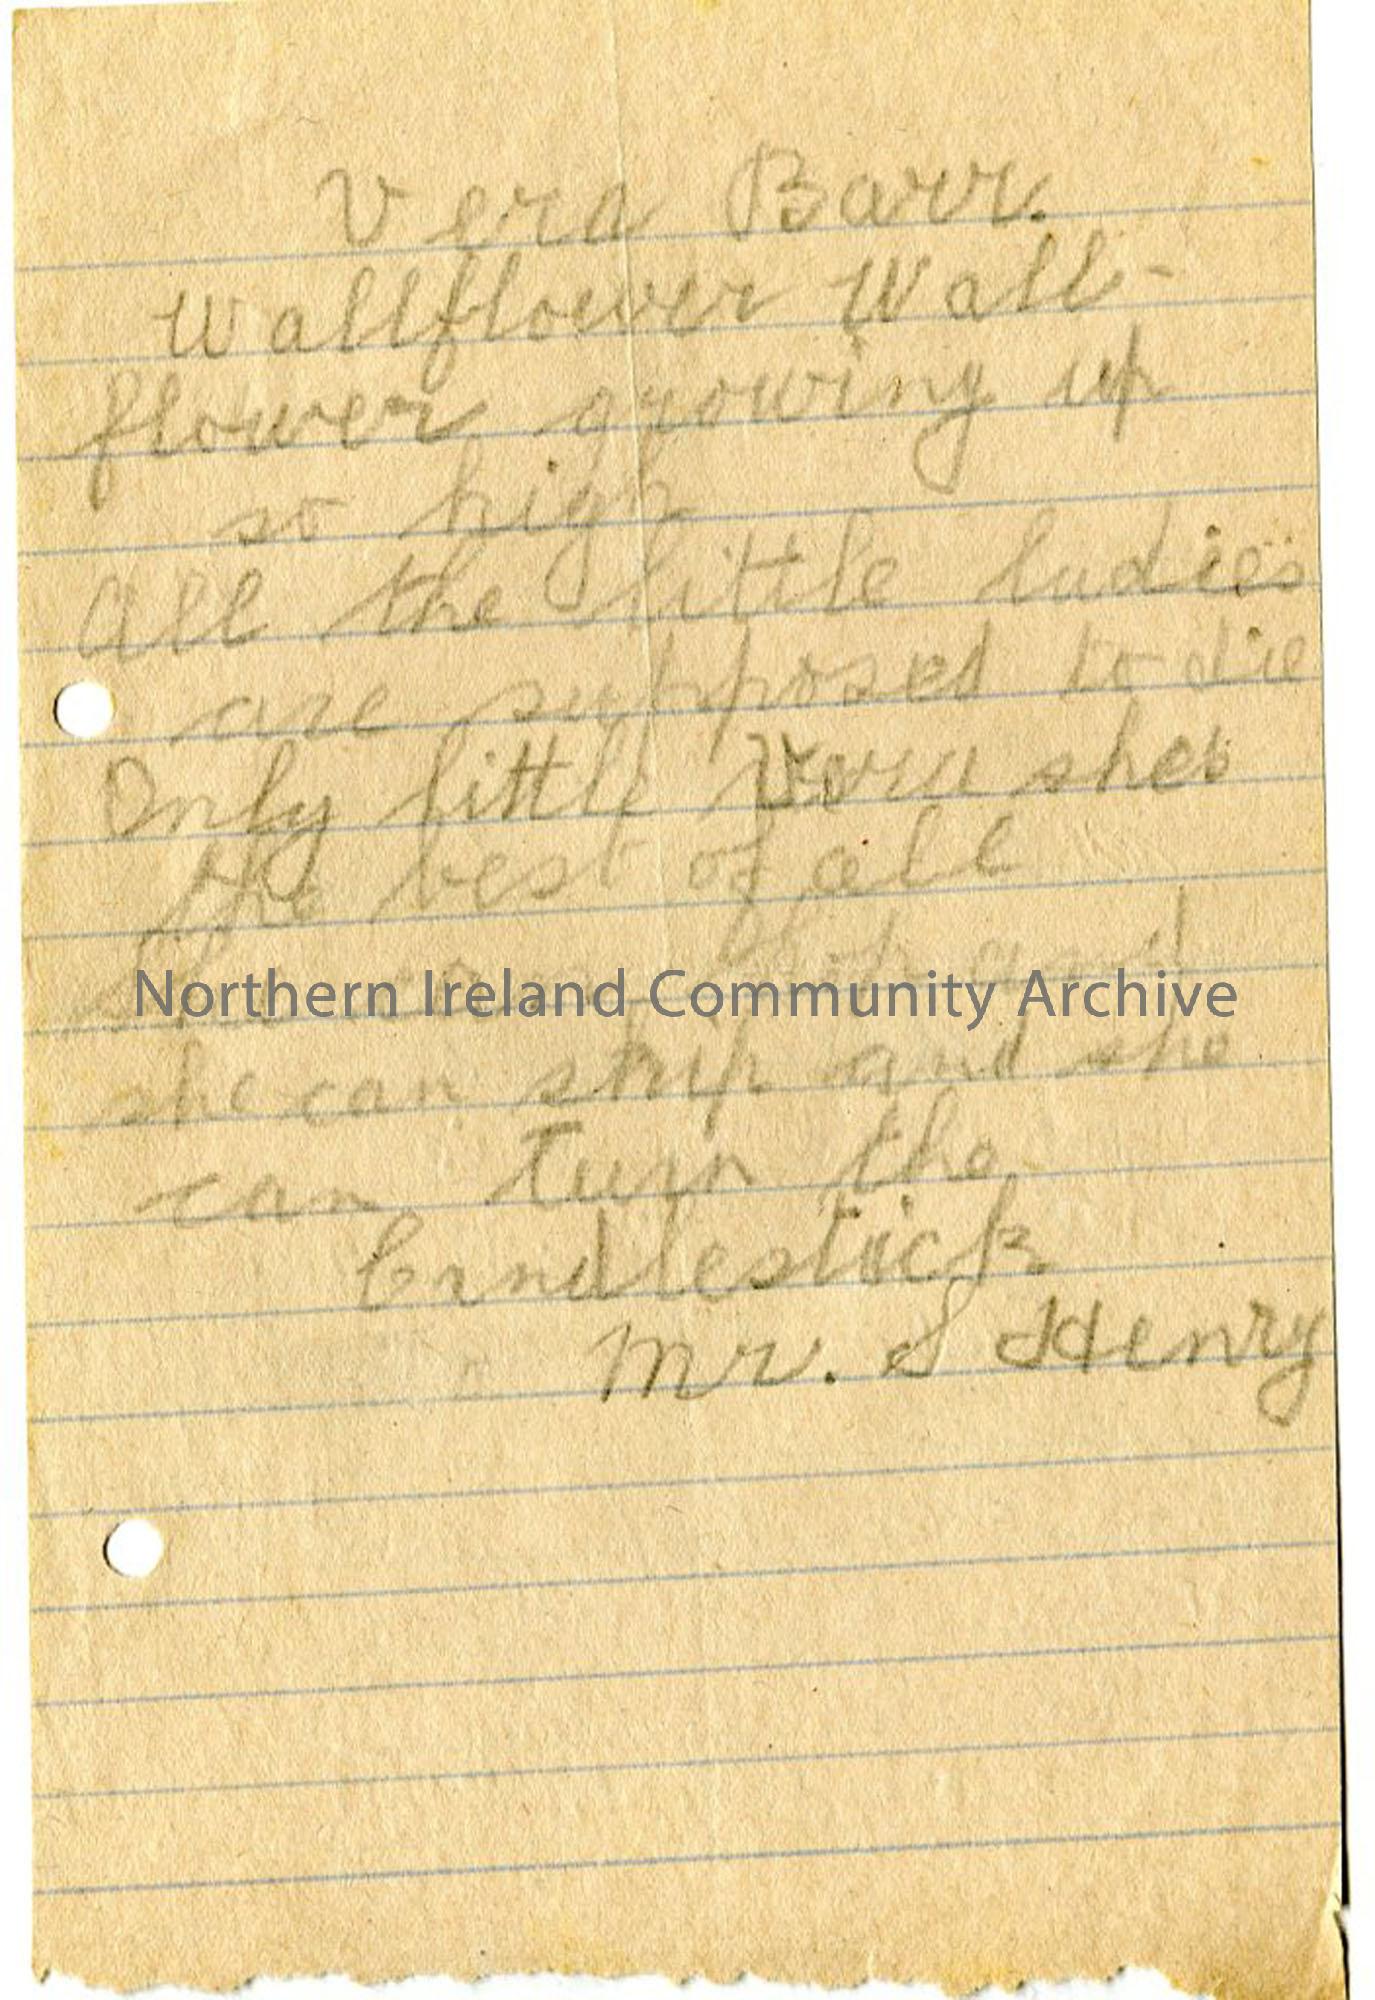 Vera Barr.
Wallflower Wall-
flower growing up
so high
All the little ladies
are supposed to die
Only little Vera shes
the best of all
She can hop and
Northern Ireland Community Archive
she can skip and she
can turn the
Candlestick
Mr. S Henry